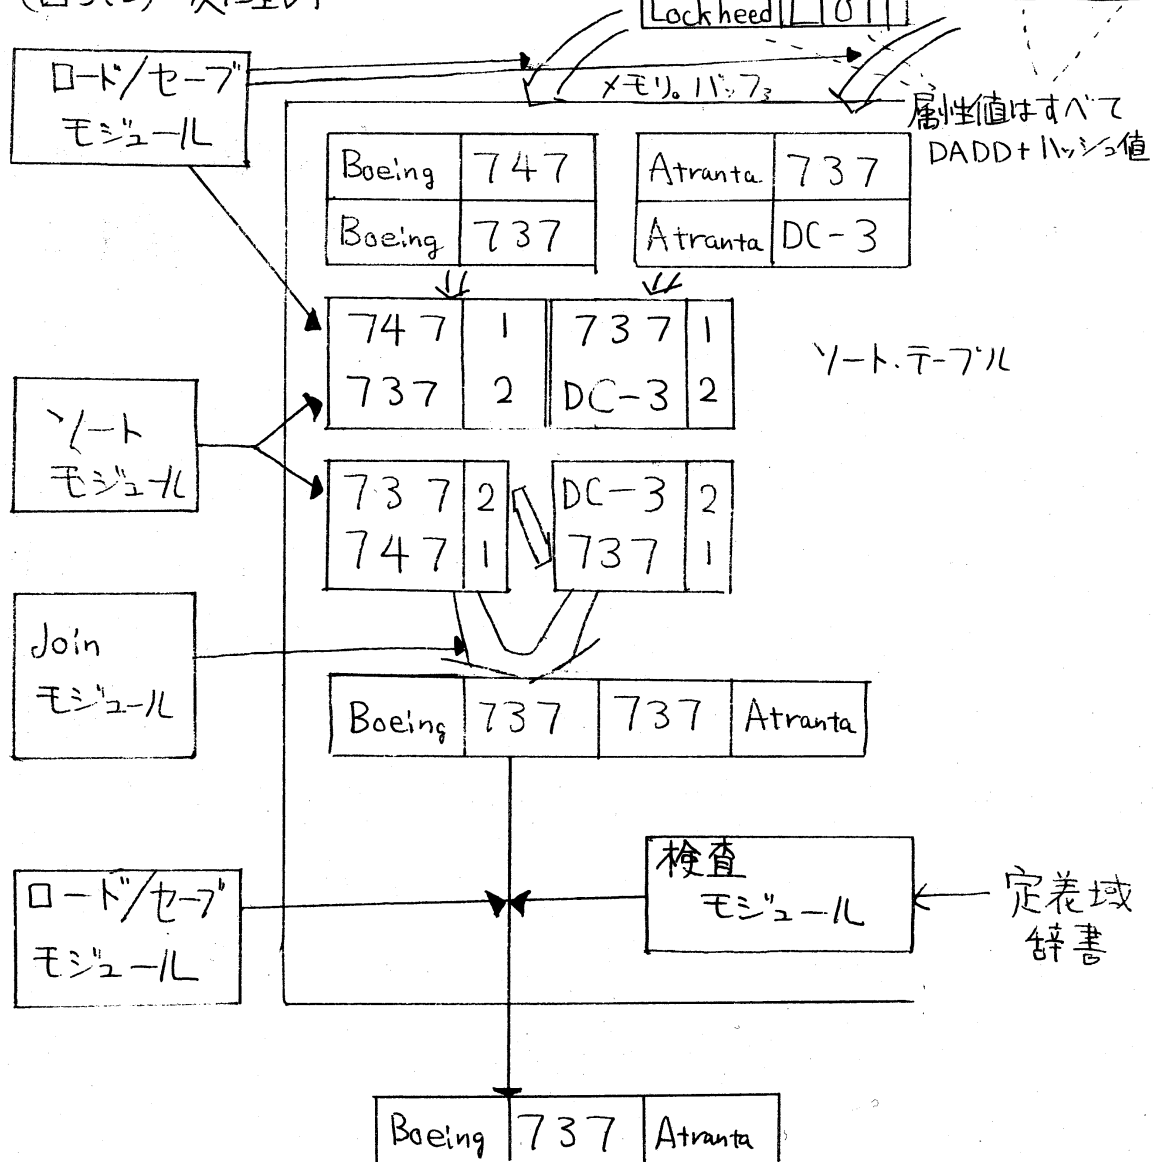 Lockheed L 011
ロード/セーブ
モジュール
メモリ。バッファ
属性値はすべて
DADD+ハッシュ値
Boeing 747
Boeing 737
Atranta 737
Atranta DC-3
747 1 737 1
737 2 DC-3 2
ソート.テーブル
ソート
モジュール
737 2 DC-3 2
747 1 737 1
Join
モジュール
Boeing 737 737 Atranta
検査
モジュール
定義域
辞書
ロード/セーブ
モジュール
Boeing 737 Atranta